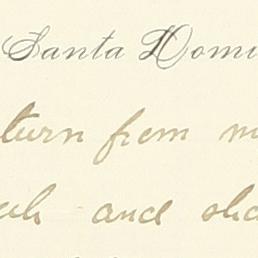 Santa Domi
turn from m
and sha